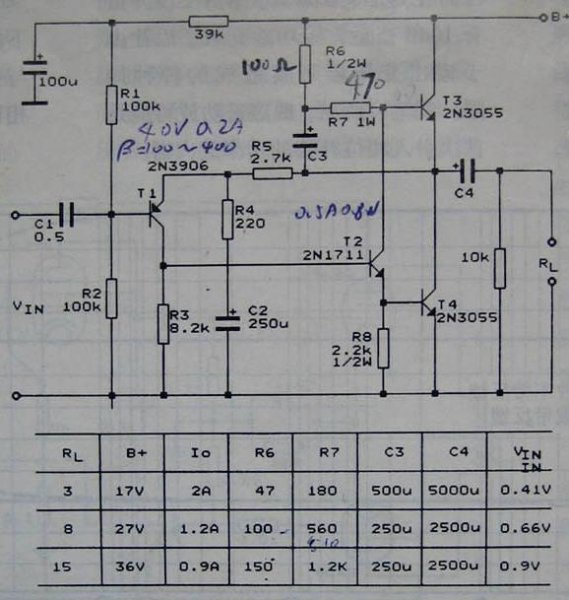 B+
39k
100u
100Ω
R6
1/2W
470
R7 1W
T3
2N3055
R1
100k
40V 0.2A
β=100~400
2N3906
R5
2.7k
C3
C4
T1
C1
0.5
R4
220
T2
2N1711
10k
RL
VIN
R2
100k
R3
8.2k
C2
250u
R8
2.2k
1/2W
T4
2N3055
RL B+ Io R6 R7 C3 C4 VIN IN
3 17V 2A 47 180 500u 5000u 0.41V
8 27V 1.2A 100 560 250u 2500u 0.66V
510
15 36V 0.9A 150 1.2K 250u 2500u 0.9V